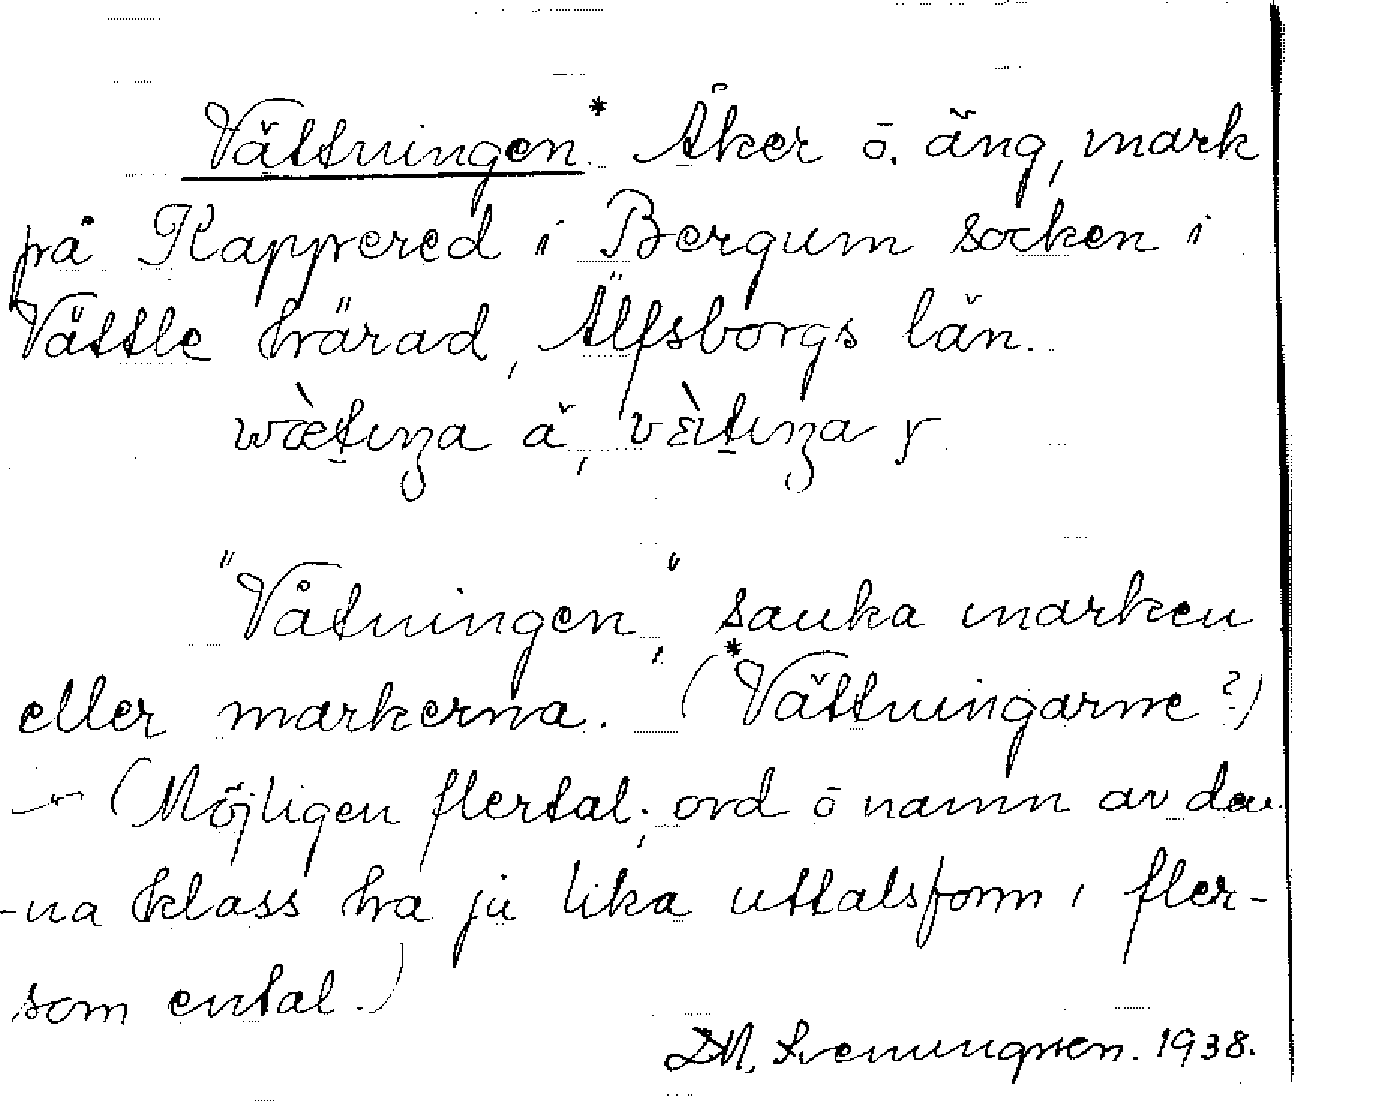 Vättningen.* Åker ō. äng, mark
på Kappered i Bergum socken i
Vättle härad, Älfsborgs län.
wæ̀tıŋa ä, vɛ̀ıtıŋa y
"Våtningen," sanka marken
eller markerna. (*Vättningarne?)
— (Möjligen flertal; ord ō namn av den-
-na klass ha ju lika uttalsform i fler-
som ental.)
DM. Sveningsen. 1938.